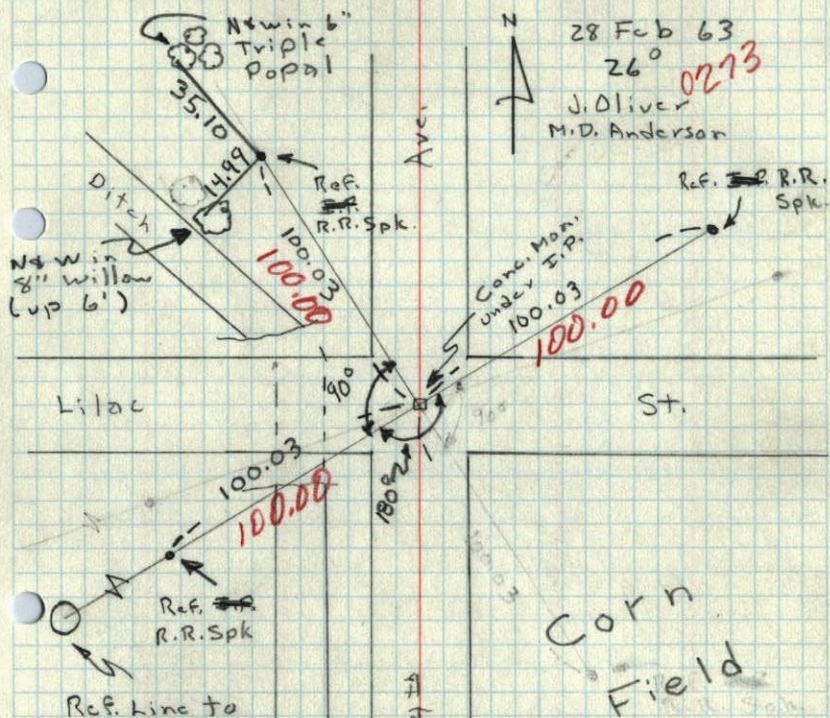 N & W in 6"
Triple
Popal
N
28 Feb 63
26°
0273
J. Oliver
M.D. Anderson
35.10
14.99
Ditch
Ref.
R.R. Spk.
Ave.
Ref. R.R.
Spk.
N & W in
8" Willow
(up 6')
100.03
100.00
Conc. Mon.
under I.P.
100.03
100.00
Lilac
90°
St.
90°
100.03
100.00
180°
100.03
Ref.
R.R. Spk
Corn
Field
R.R. Spk
Ref. Line to